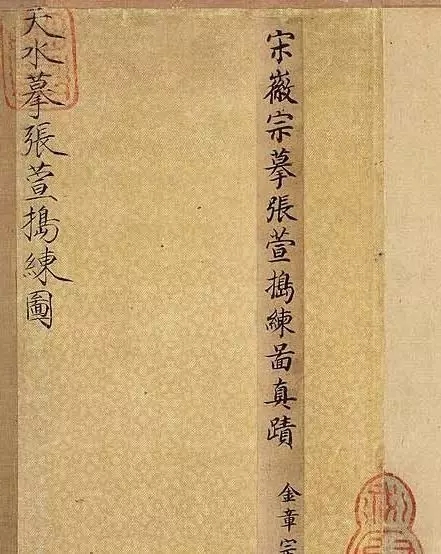 宋徽宗摹張萱搗練啚真蹟
金章宗
天水摹張萱搗練圖